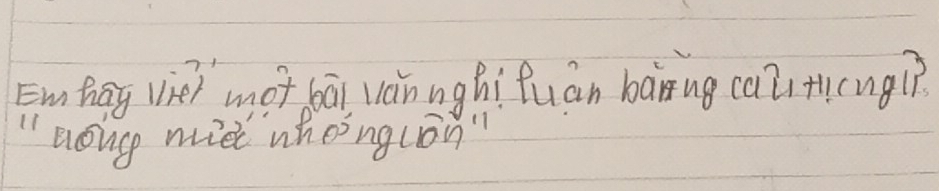 Em hãy viết một bài văn nghị luận bằng câu tục ngữ?
"uống nước nhớ nguồn"